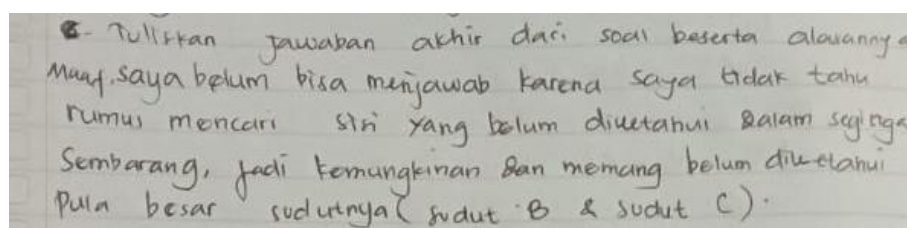 6. Tuliskan jawaban akhir dari soal beserta alasannya
Maaf, saya belum bisa menjawab karena saya tidak tahu
rumus mencari sisi yang belum diketahui dalam segitiga
Sembarang, jadi kemungkinan dan memang belum diketahui
Pula besar sudutnya ( sudut B & sudut C ).